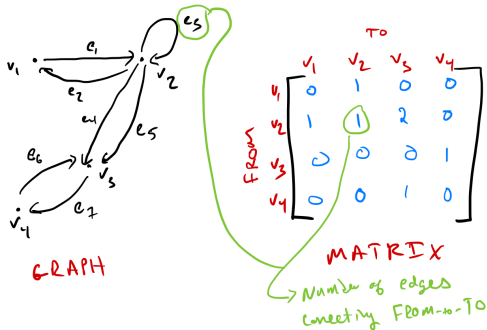 e3
e1
v1
v2
e2
e4
e5
e6
v3
e7
v4
GRAPH
TO
v1 v2 v3 v4
FROM
v1 0 1 0 0
v2 1 1 2 0
v3 0 0 0 1
v4 0 0 1 0
MATRIX
Number of edges
connecting FROM-to-TO